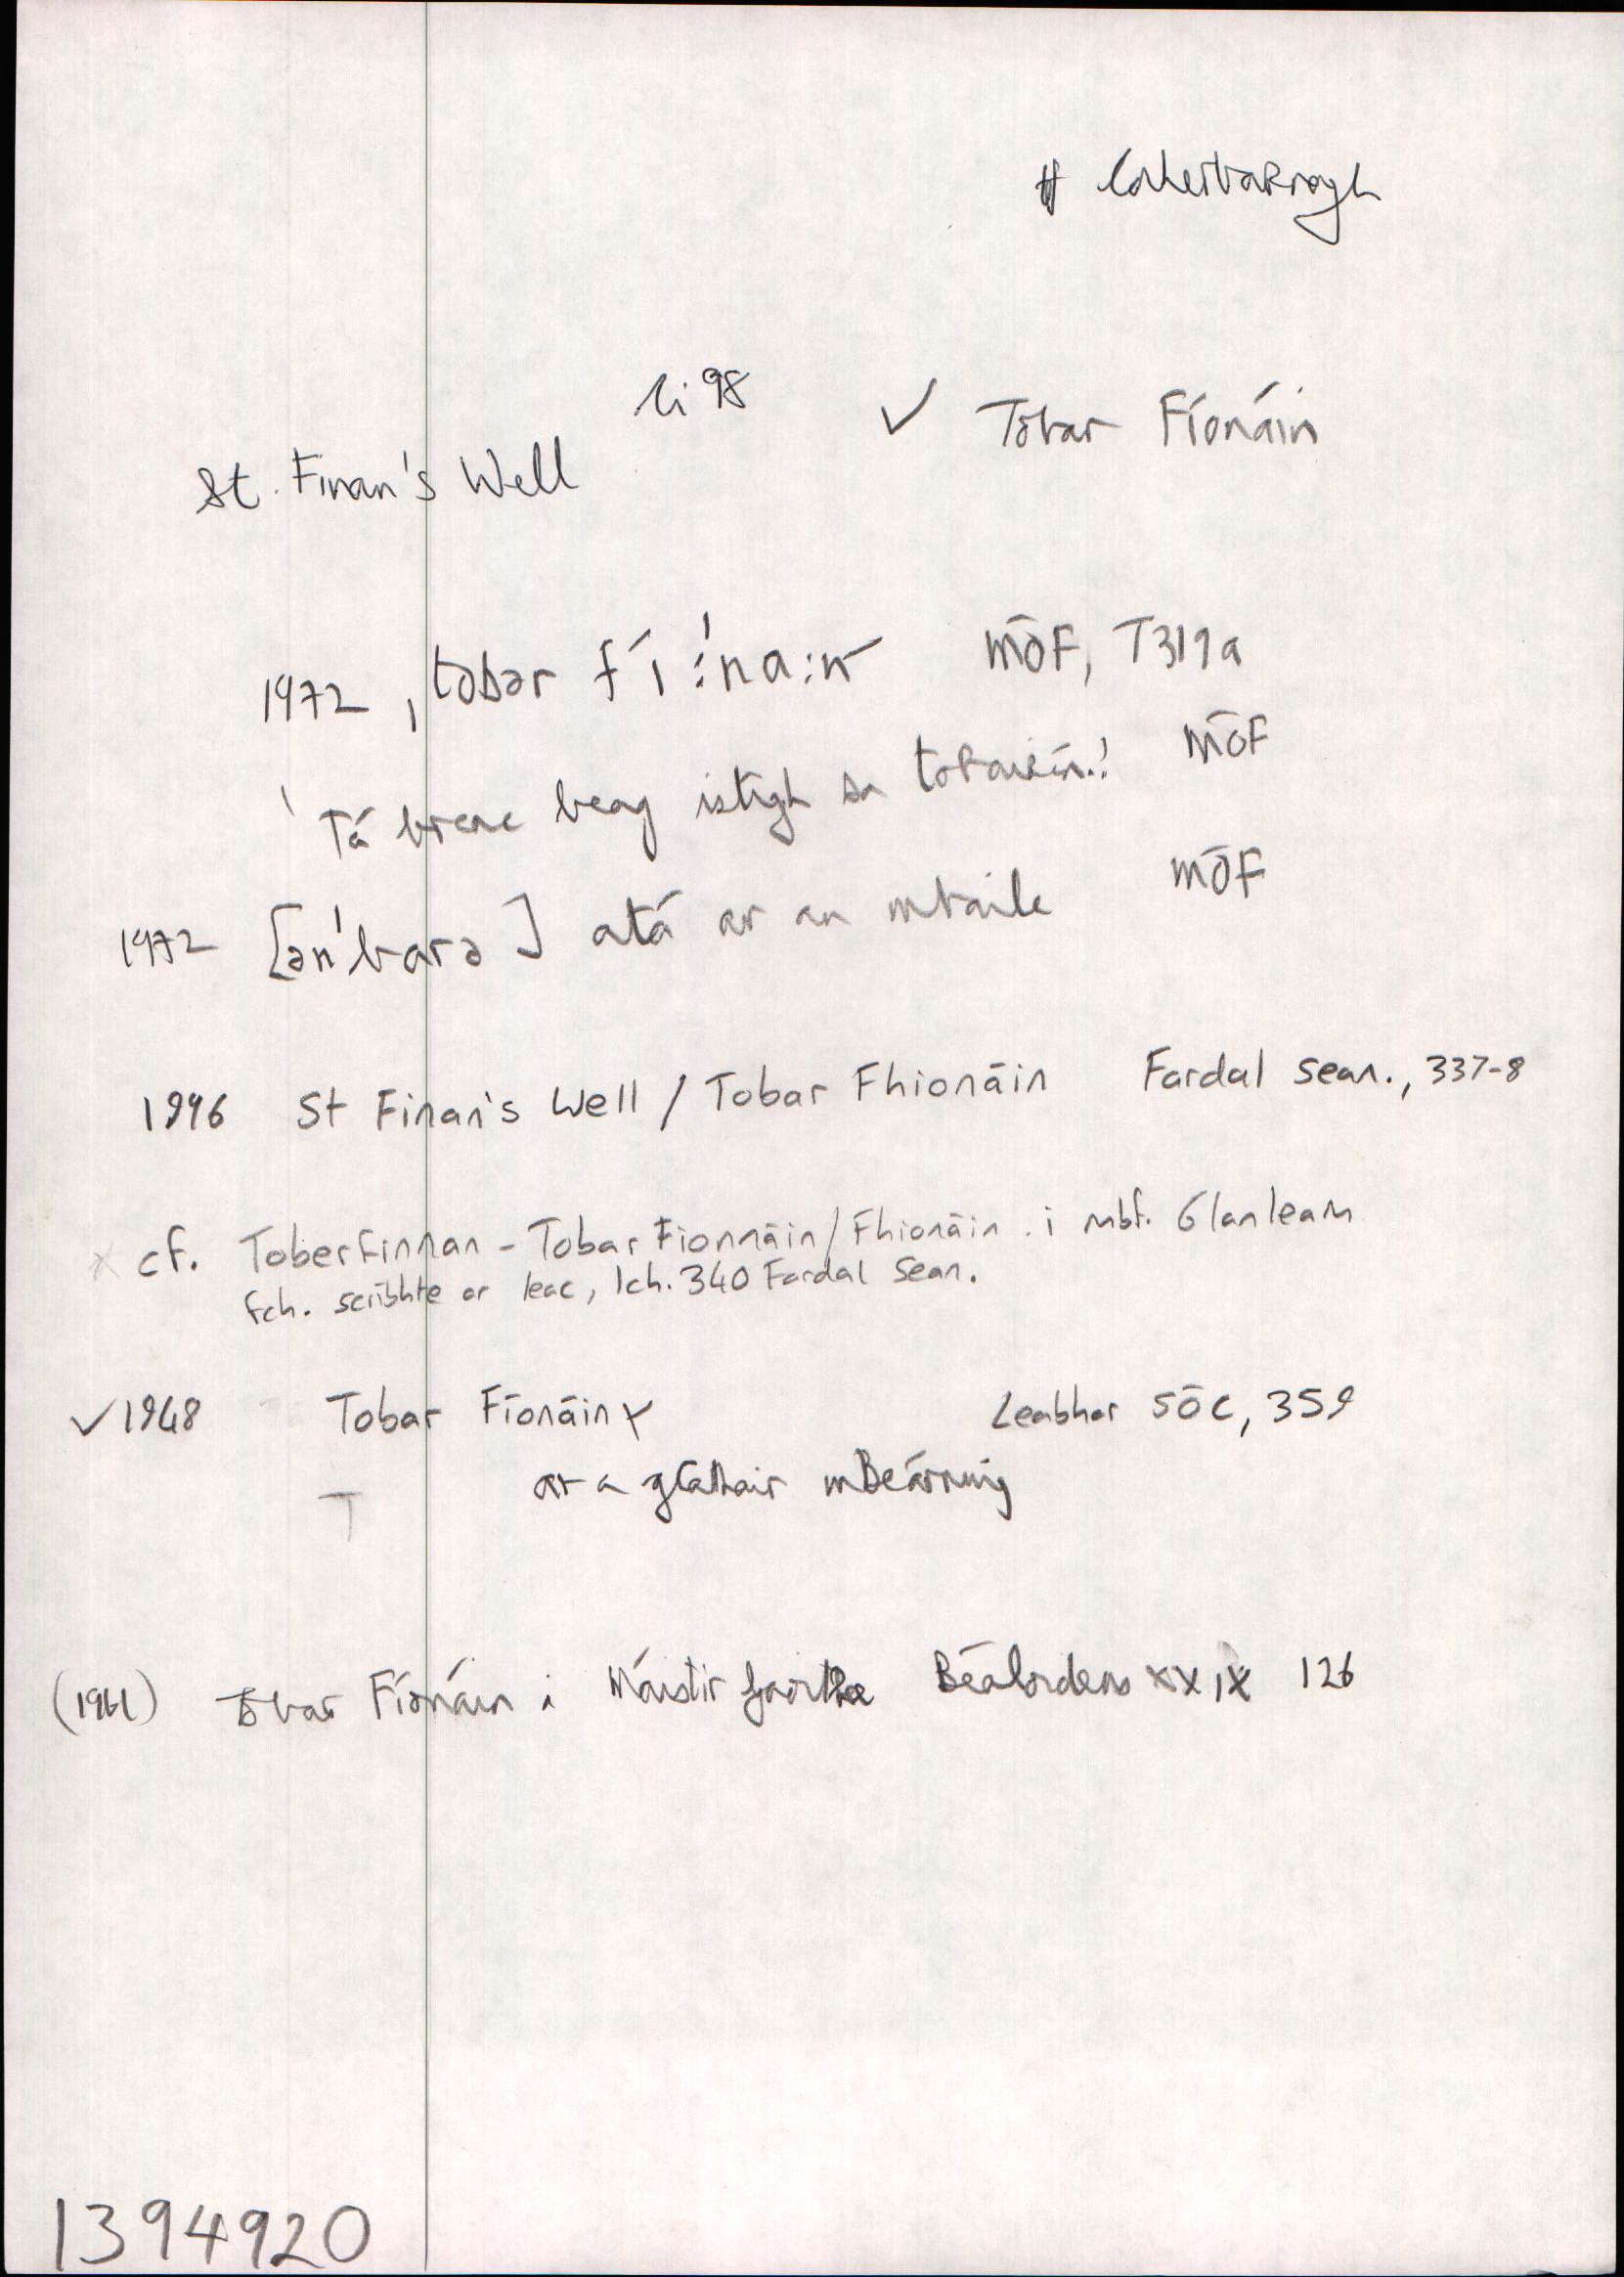 # Caherbarnagh
li 98 ✓ Tobar Fíonáin
St. Finan's Well
1972 ˌtobər f´i:ˈna:n´ MÓF, T319a
'Tá breac beag istigh sa tobairín.' MÓF
1972 [ənˈbarə] atá ar an mbaile MÓF
1996 St Finan's Well / Tobar Fhionáin Fardal Sean., 337-8
x cf. Toberfinnan - Tobar Fionnáin / Fhionáin i mbf. Glanleam
fch. scríbhte ar leac, lch. 340 Fardal Sean.
✓ 1948 Tobar Fíonáin x Leabhar SÓC, 359
T ar a gCathair mBeárnaig
Tobar Fíonáin i Máistir Gaoithe Béaloideas XXIX 126
1394920